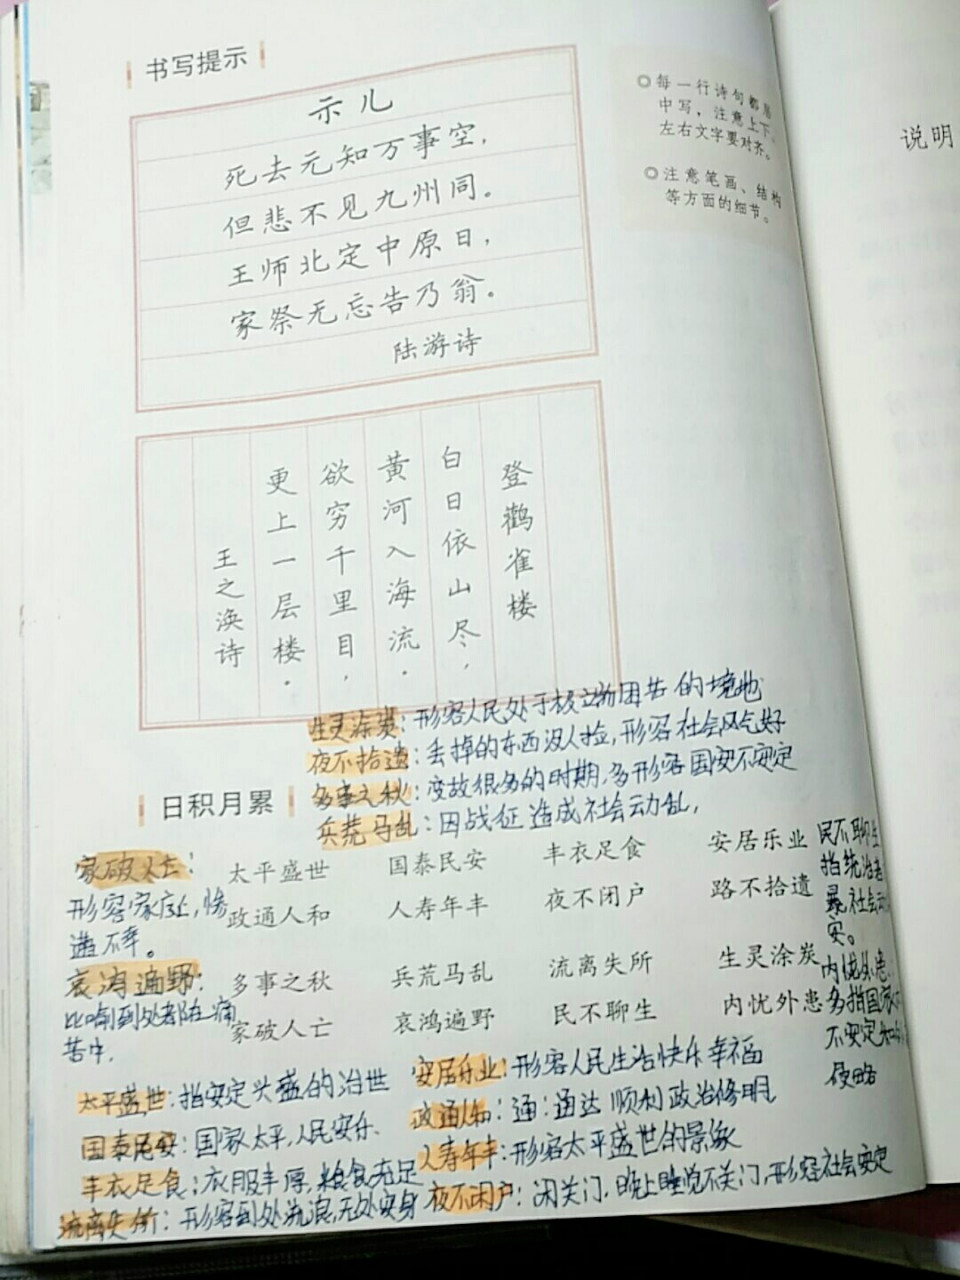 书写提示
示儿
死去元知万事空，
但悲不见九州同。
王师北定中原日，
家祭无忘告乃翁。
陆游诗
◎每一行诗句都居
中写，注意上下、
左右文字要对齐。
◎注意笔画、结构
等方面的细节。
说明
登鹳雀楼
白日依山尽，
黄河入海流。
欲穷千里目，
更上一层楼。
王之涣诗
生灵涂炭：形容人民处于极立物困苦的境地
夜不拾遗：丢掉的东西没人捡，形容社会风气好
多事之秋：变故很多的时期，多形容国安不安定
兵荒马乱：因战征造成社会动乱，
日积月累
太平盛世 国泰民安 丰衣足食 安居乐业
政通人和 人寿年丰 夜不闭户 路不拾遗
多事之秋 兵荒马乱 流离失所 生灵涂炭
家破人亡 哀鸿遍野 民不聊生 内忧外患
家破人亡：
形容家庭上，惨
遭不幸。
哀鸿遍野：
比喻到处都在痛
苦中，
民不聊生
指统治者
社会动
安。
内忧外患：
多指国家不
不安定
侵略
太平盛世：指安定兴盛的治世
国泰民安：国家太平，人民安乐.
丰衣足食：衣服丰厚，粮食充足
流离失所：形容到处流浪，无处安身
安居乐业：形容人民生活快乐幸福
政通人和：通：通达 顺利 政治修明，
人寿年丰：形容太平盛世的景象
夜不闭户：闭关门，晚上睡觉不关门，形容社会安定